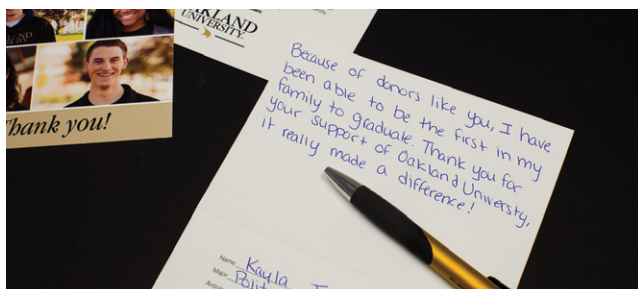 OAKLAND
UNIVERSITY
Thank you!
Because of donors like you, I have
been able to be the first in my
family to graduate. Thank you for
your support of Oakland University,
it really made a difference!
Name Kayla
Major